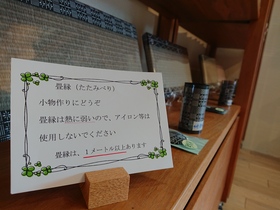 畳縁（たたみべり）
小物作りにどうぞ
畳縁は熱に弱いので、アイロン等は
使用しないでください
畳縁は、1メートル以上あります